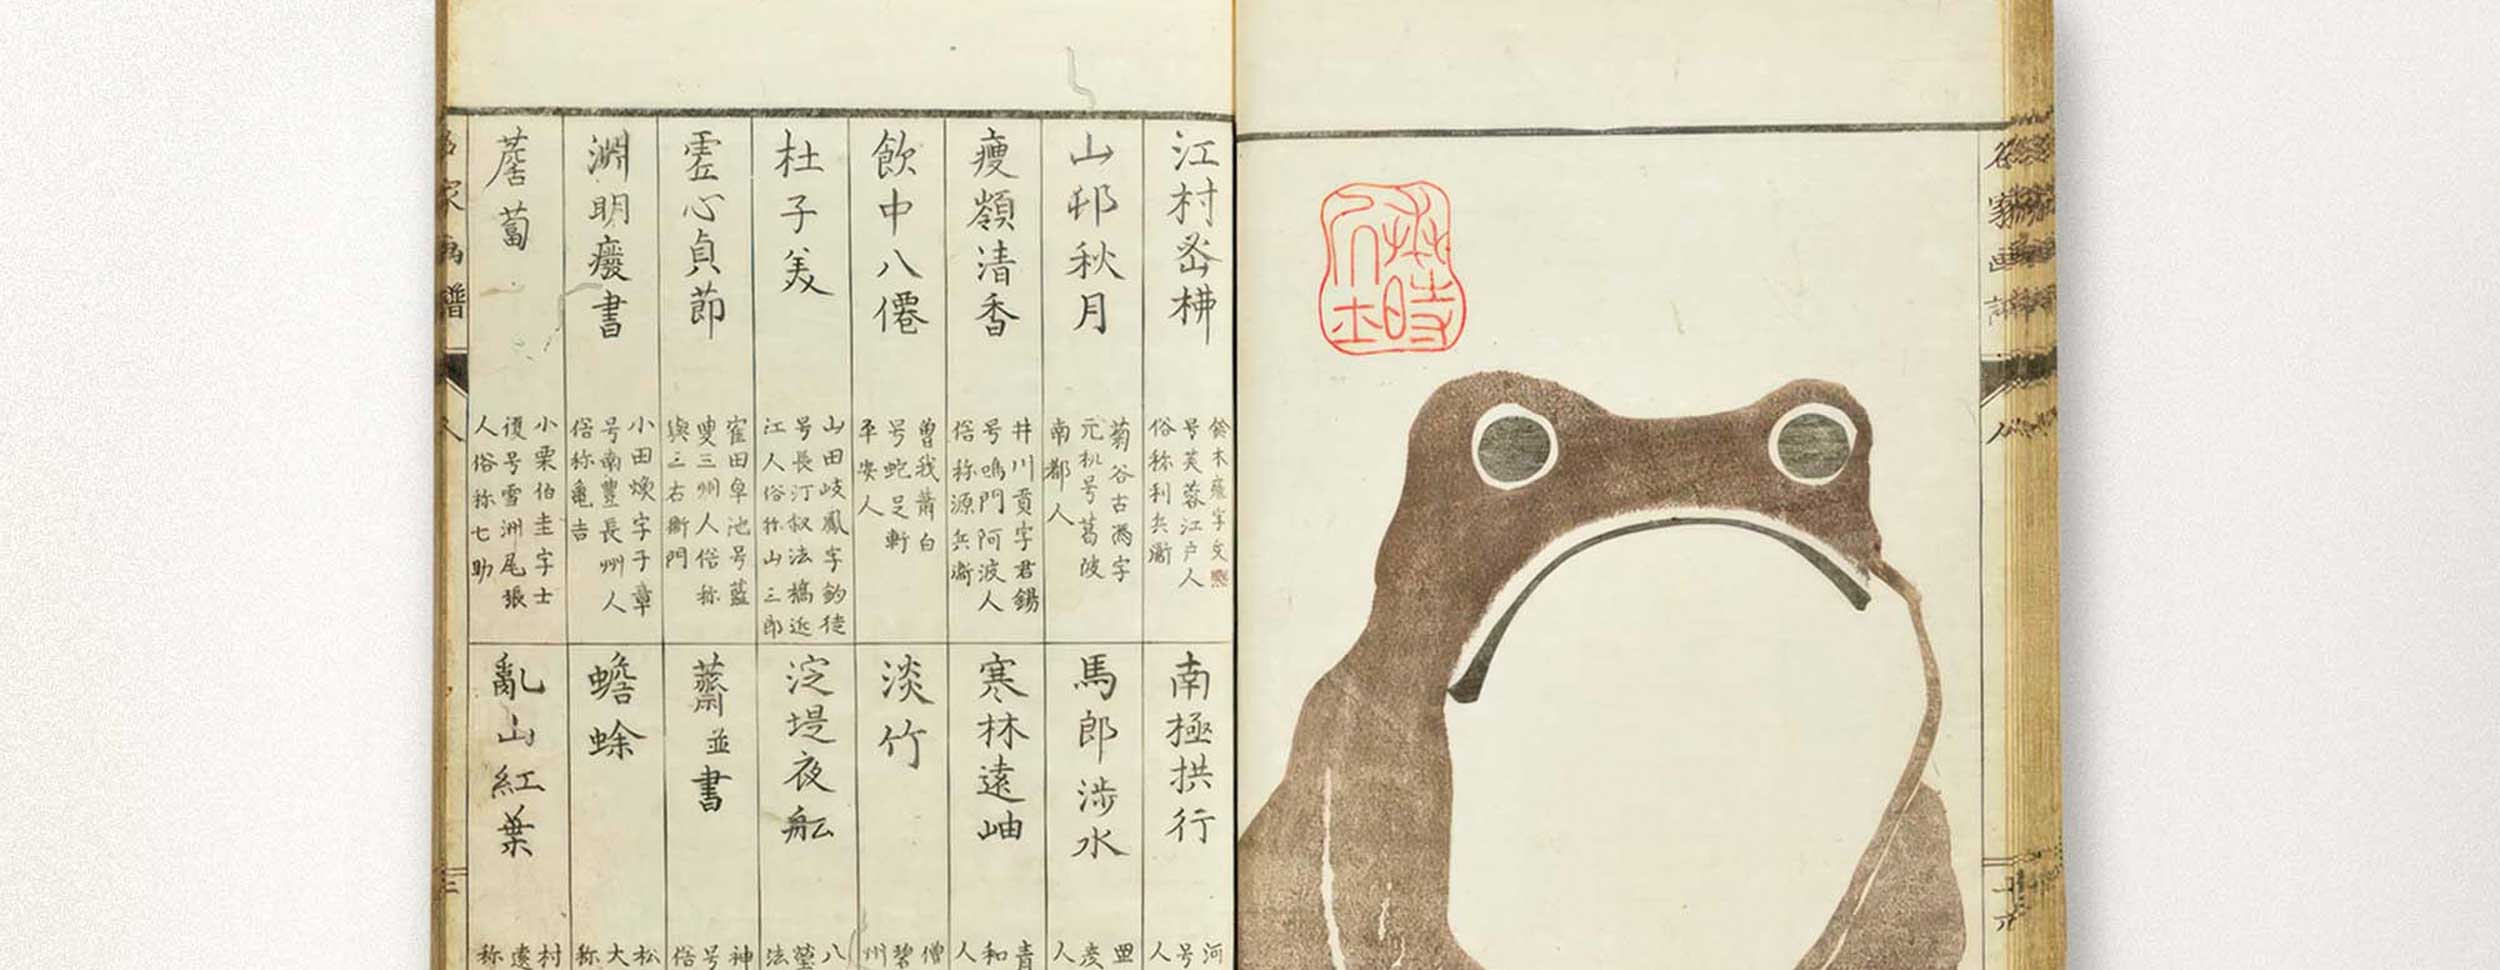 江村
山邨秋月
瘦嶺清香
飲中八僊
杜子美
虛心貞節
淵明廢書
蒼蔔
号芙蓉江户人
俗称利兵衞
菊谷古馮字
元机号葛陂
南都人
井川貢字君錫
号鳴門阿波人
俗称源兵衞
曽我蕭白
号蛇足軒
平安人
山田岐鳳字
号長汀叙法橋近
江人俗称山三郎
田阜池号藍
叟三州人俗称
与三右衞門
小田煥字子章
号南豊長州人
俗称亀吉
小栗伯圭字士
復号雪洲尾張
人俗称七助
南極拱行
馬郎渉水
寒林遠岫
淡竹
淀堤夜舩
並書
蟾蜍
亂山紅葉
河
号
人
人
青
和
人
僧
碧
州
八
瑩
法
神
号
俗
松
大
称
村
遠
称